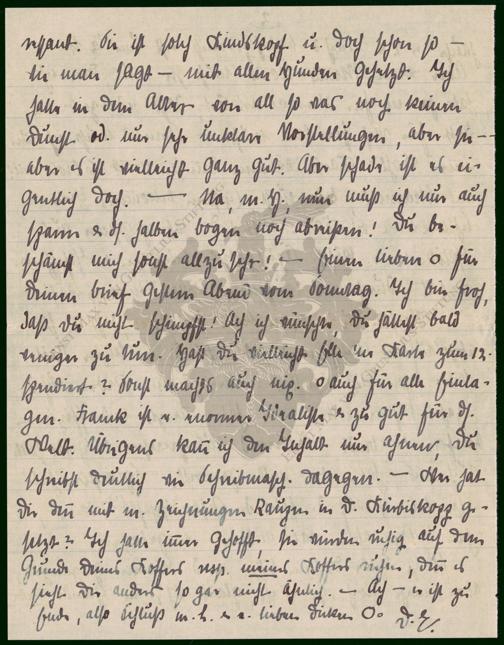 ressant. Sie ist solch Kindskopf u. doch schon so –
wie man sagt – mit allen Hunden gehetzt. Ich
hatte in dem Alter von all so was noch keinen
Dunst od. nur sehr unklare Vorstellungen, aber sie –
aber es ist vielleicht ganz gut. Aber schade ist es ei-
gentlich doch. — Na, m. H, nun muß ich nur auch
noch abreißen! Du be-
schämst mich sonst allzu sehr! – Einen lieben o für
Deinen Brief gestern Abend vom Sonntag. Ich bin froh,
daß Du nicht schimpfst! Ach ich wünschte, Du hättest bald
weniger zu tun. Hast Du vielleicht Karte zum 12.
spendiert? Sonst machts auch nix. o auch für alle Einla-
gen. Frank ist e. enormer Idealist & zu gut für ds.
Welt. Übrigens kann ich den Inhalt nur ahnen, Du
schreibst deutlich wie Schreibmasch. dagegen. – Wer hat
Dir denn mit m. Zeichnungen Raupen in D. Kürbiskopp ge-
setzt? Ich hatte immer gehofft, sie würden ruhig auf dem
Grunde Deines Koffers resp. meines Koffers ruhen, denn es
sieht Dir anders so gar nicht ähnlich. – Ach – es ist zu
Ende, also Schluß m. H. & e. lieben dicken O. D. E.